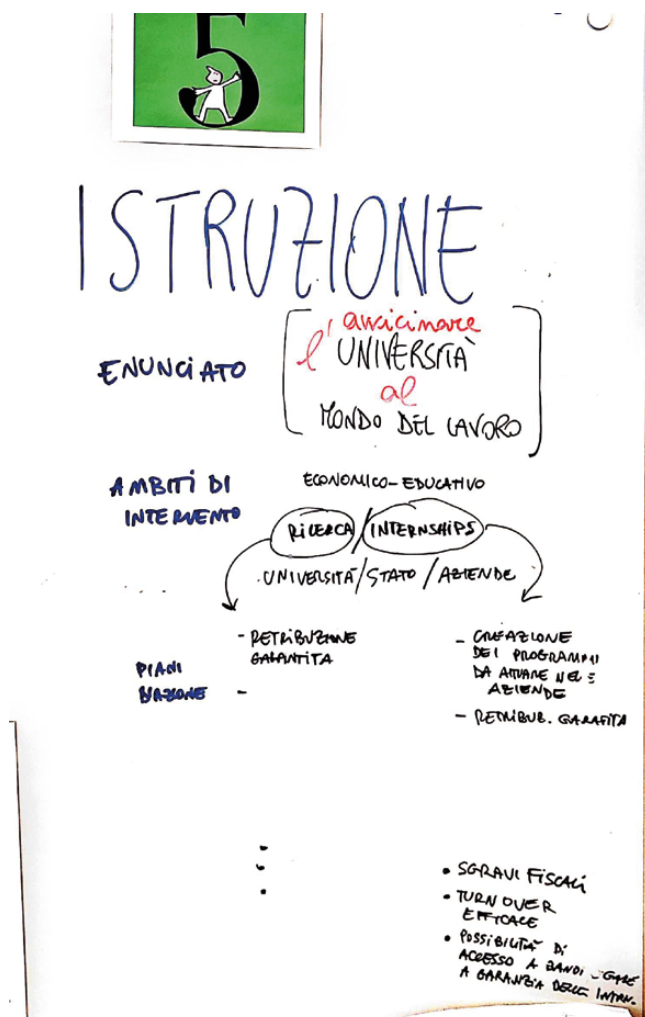 5
ISTRUZIONE
ENUNCIATO
l'avvicinare
UNIVERSITÀ
al
MONDO DEL LAVORO
AMBITI DI
INTERVENTO
ECONOMICO-EDUCATIVO
RICERCA/INTERNSHIPS
UNIVERSITÀ/STATO/AZIENDE
PIANI
- RETRIBUZIONE
GARANTITA
-
- CREAZIONE
DEI PROGRAMMI
DA ATTUARE
AZIENDE
- RETRIBUB. GARANTITA
• SGRAVI FISCALI
• TURN OVER
EFFICACE
• POSSIBILITÀ DI
ACCESSO A BANDI GARE
A GARANZIA DELLE INTRN.